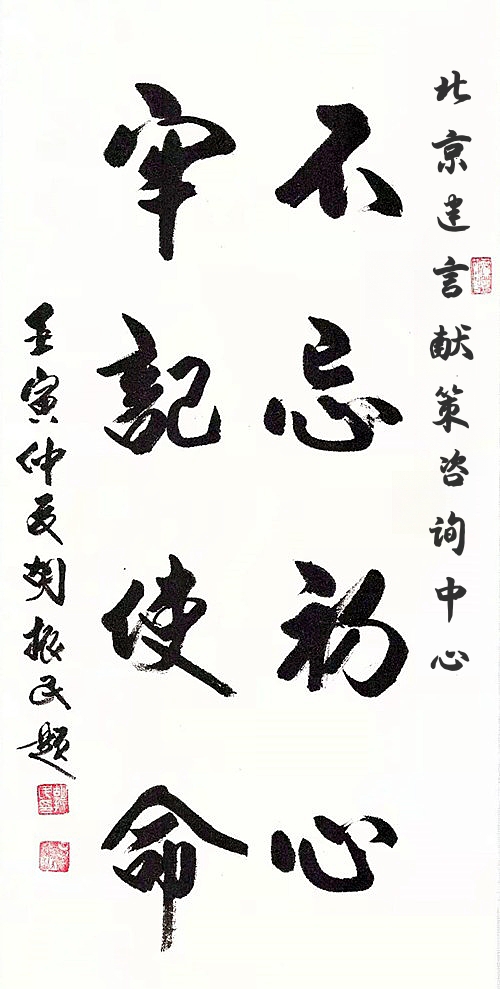 北京建言献策咨询中心
不忘初心
牢記使命
壬寅仲夏胡振民题